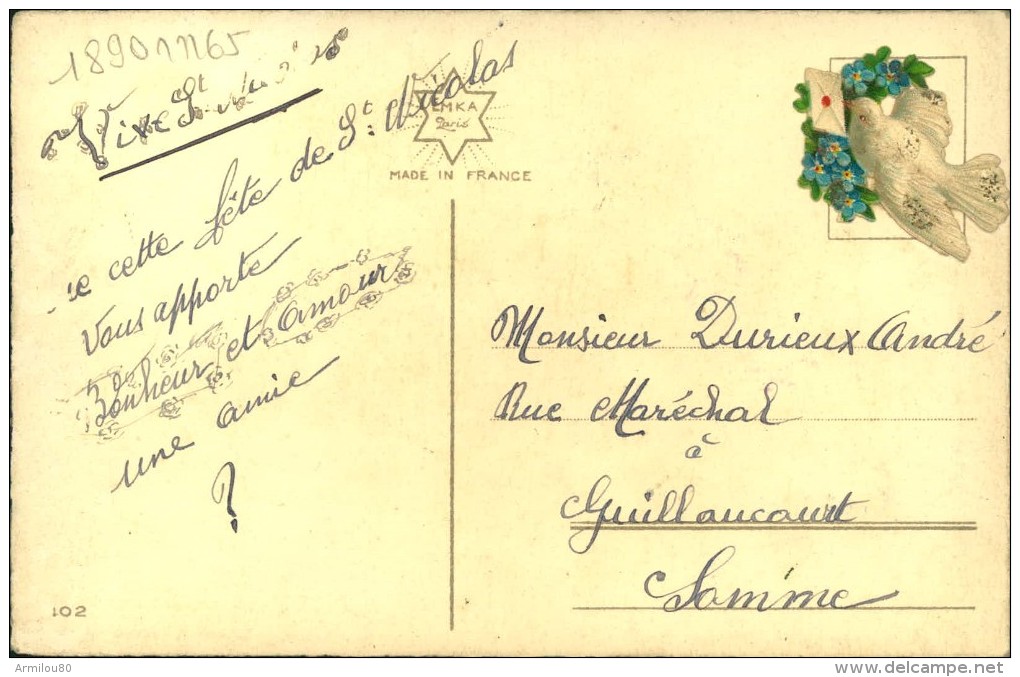 1890 1765
Vive St Nicolas
que cette fête de St. Nicolas
Vous apporte
Bonheur et amour
une amie
?
EMKA
Paris
MADE IN FRANCE
Monsieur Durieux André
Rue Maréchal
à
Guillaucourt
Somme
102
Armilou80
http://www.delcampe.net